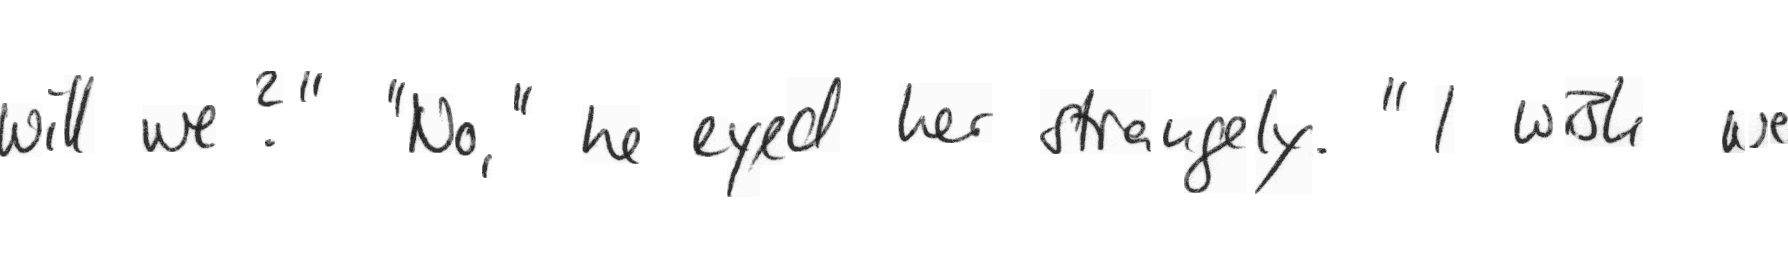 will we?" "No," he eyed her strangely. "I wish we